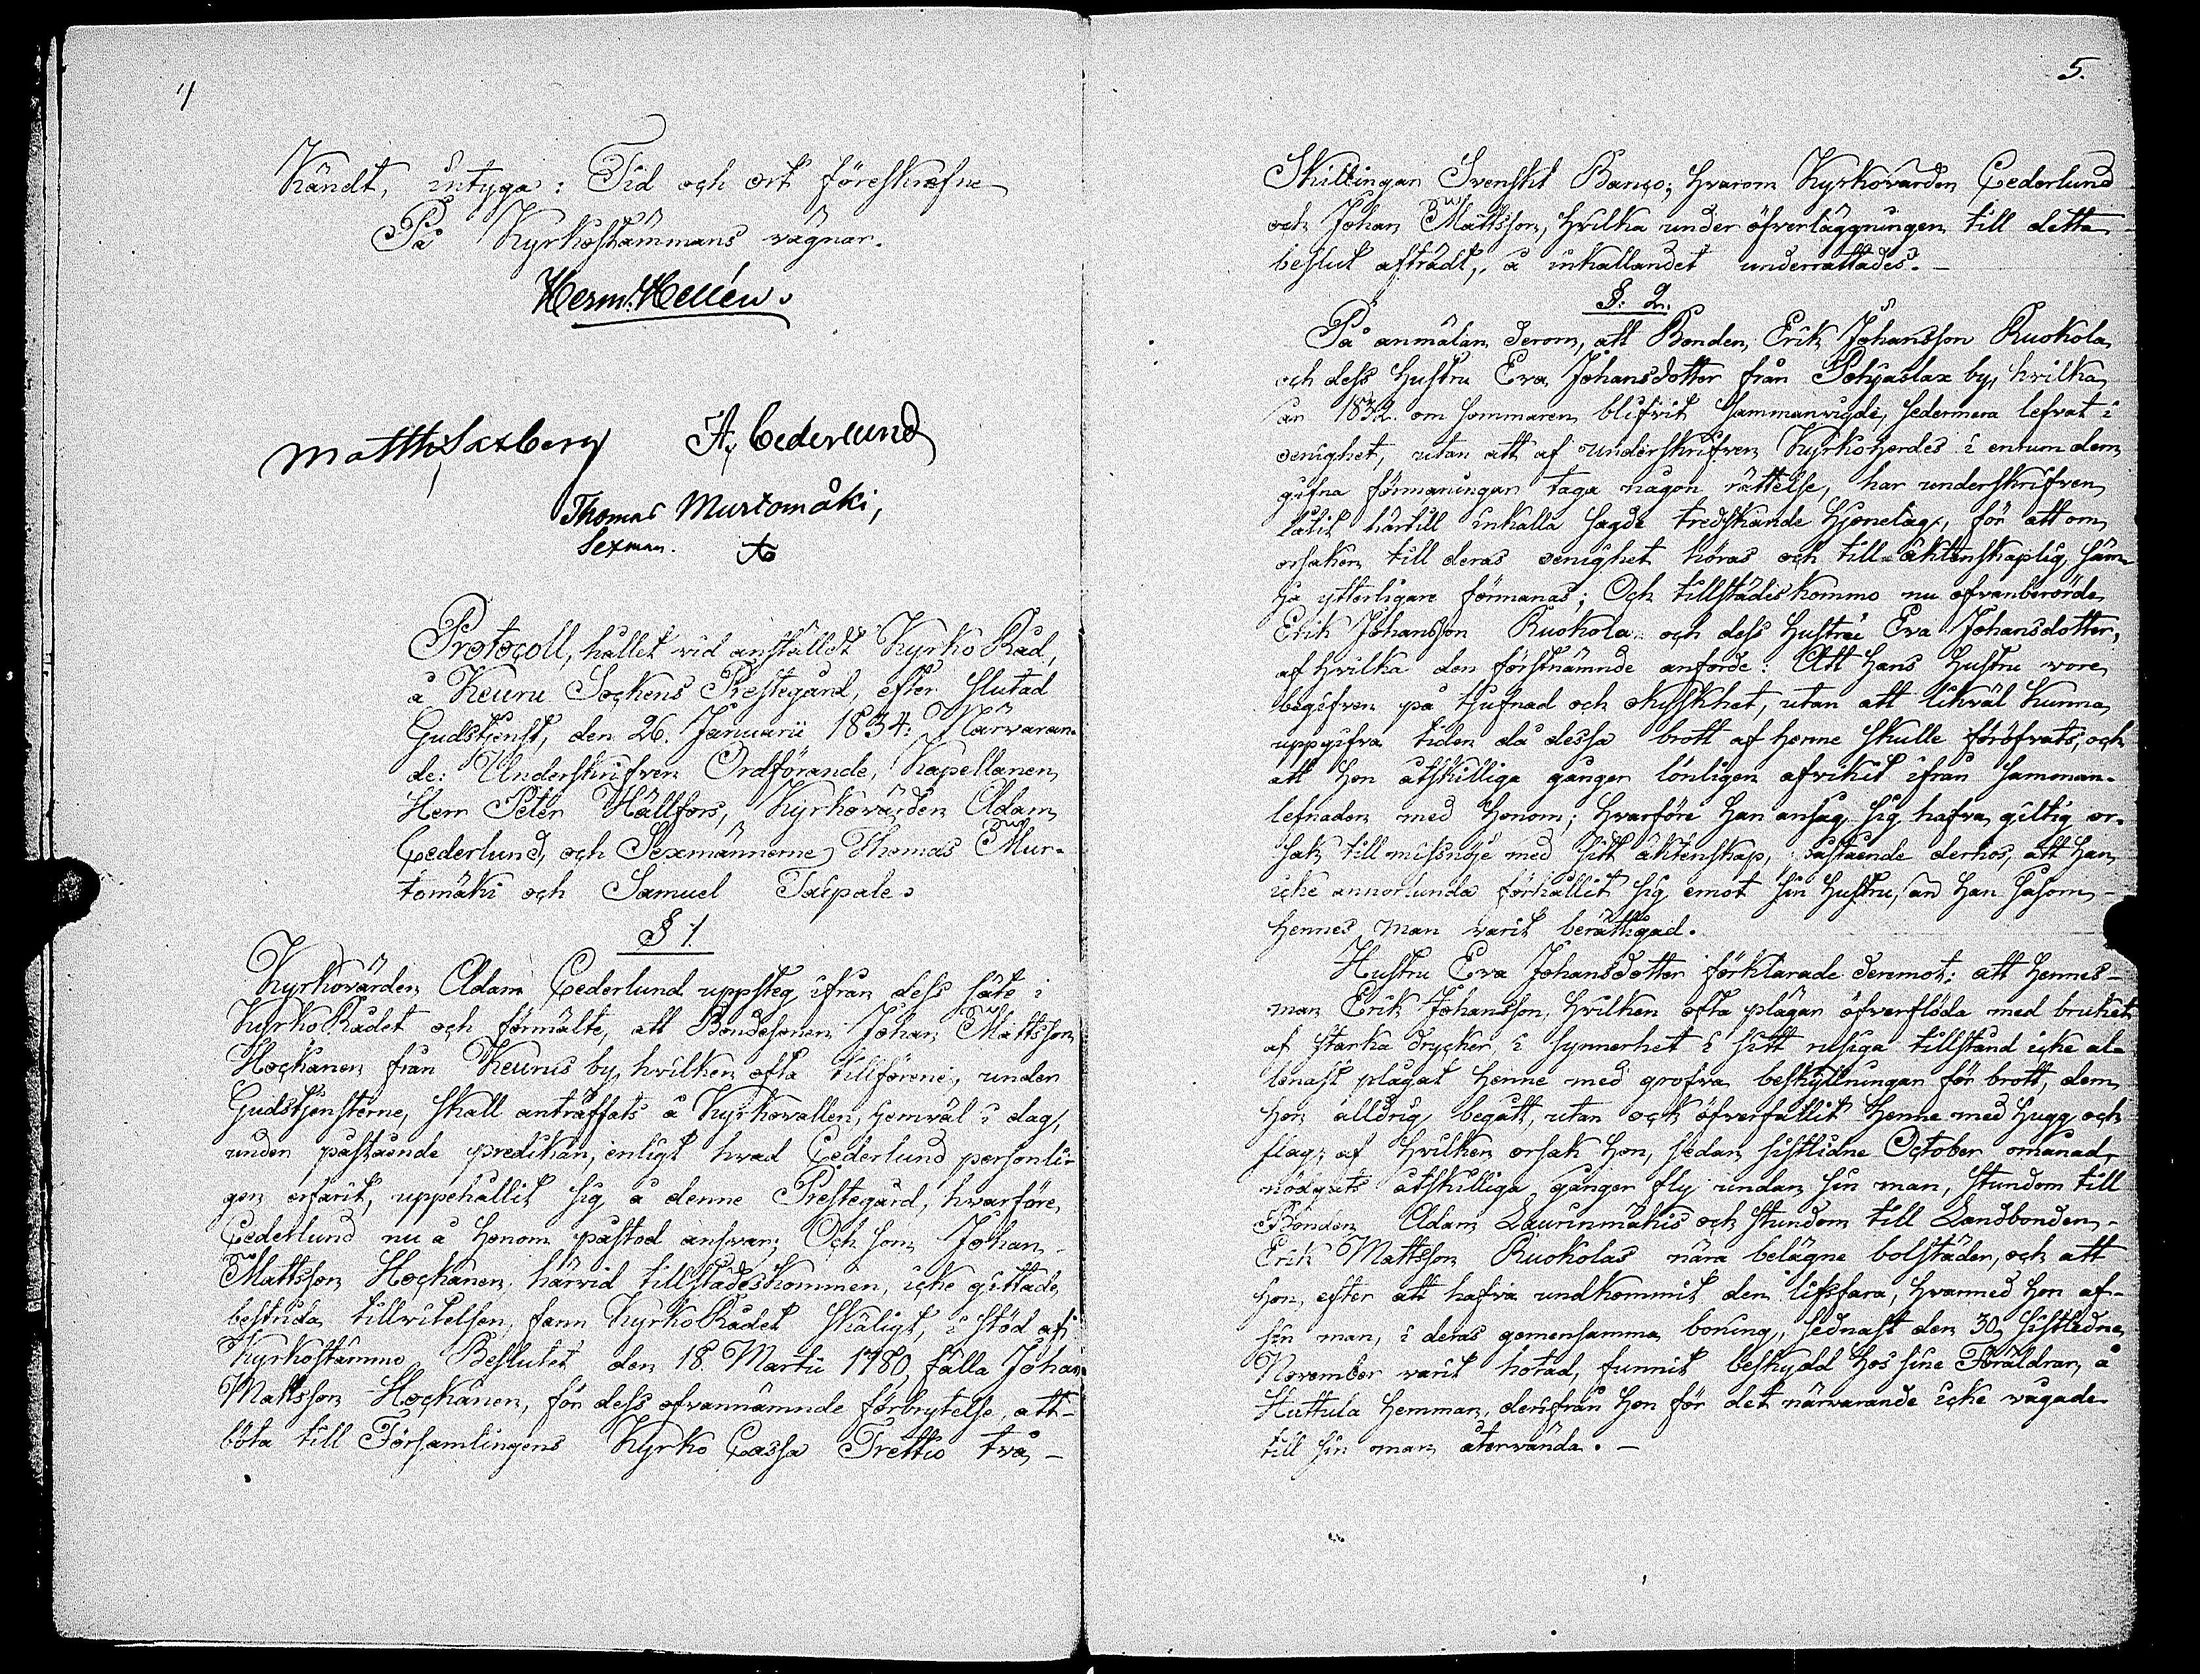 4
Kändt, intyga: Tid och ort föreskrefne
På Kyrkostämmans vägnar.
Herm. Hellén.
Matth Saxberg A. Cederlund
Thomas Murtomäki,
Sexman.
Protocoll, hållet vid anstäldt Kyrko Råd,
å Keuru Sockens Prestegård, efter slutad
Gudstjenst, den 26. Januarii 1834. Närvaran-
de: Underskrifven Ordförande, Kapellanen
Herr Peter Hällfors, Kyrkovärden Adam
Cederlund, och Sexmännerne Thomas Mur-
tomäki och Samuel Taipale.
§ 1.
Kyrkovärden Adam Cederlund uppsteg ifrån dess säte i
Kyrko Rådet och förmälte, att Bondesonen Johan Mattsson
Hockanen från Keuruis by, hvilken ofta tillförene, under
Gudstjensterne, skall anträffats å Kyrkovallen, jemväl i dag,
under påstående predikan, enligt hvad Cederlund personli-
gen erfarit, uppehållit sig å denne Prestegård, hvarföre
Cederlund nu å honom påstod ansvar; Och som Johan
Mattsson Hockanen, härvid tillstädeskommen, icke gittade
bestrida tillvitelsen, fann Kyrko Rådet skäligt, i stöd af
Kyrkostämmo Beslutet den 18. Martii 1780, fälla Johan
Mattsson Hockanen, för dess ofvannämnde förbrytelse, att
böta till Församlingens Kyrko Cassa Trettio två
5.
Skillingar Svenskt Banco; hvarom Kyrkovärden Cederlund
och Johan Mattsson, hvilka under öfverläggningen till detta
beslut afträdt, å inkallandet underrättades.
§. 2.
På anmälan derom, att Bonden Erik Johansson Ruokola
och dess hustru Eva Johansdotter från Pohjaslax by, hvilka
år 1832 om sommaren blifvit sammanvigde, sedermera lefvat i
oenighet, utan att af underskrifven Kyrkoherdes i enrum dem
gifna förmaningar taga någon rättelse, har underskrifven
låtit härtill inkalla sagde tredskande Hjonelag, för att om
orsaken till deras oenighet höras och till äktenskaplig säm-
ja ytterligare förmanas; Och tillstädeskommo nu ofvanberörde
Erik Johansson Ruokola och dess hustru Eva Johansdotter,
af hvilka den förstnämnde anförde: Att hans hustru vore
begifven på tjufnad och okyskhet, utan att likväl kunna
uppgifva tiden då dessa brott af henne skulle föröfvats, och
att hon åtskilliga gånger lönligen afvikit ifrån samman-
lefnaden med honom; hvarföre han ansåg sig hafva giltig or-
sak till missnöje med sitt äktenskap, påstående derhos, att han
icke annorlunda förhållit sig emot sin hustru, än han såsom
hennes man varit berättigad.
Hustru Eva Johansdotter förklarade deremot: att hennes
man Erik Johansson, hvilken ofta plägar öfverflöda med bruket
af starka drycker, i synnerhet i sitt rusiga tillstånd icke al-
lenast plågat henne med grofva beskyllningar för brott, dem
hon alldrig begått, utan ock öfverfallit henne med hugg och
slag; af hvilken orsak hon, sedan sistlidne October månad,
nödgats åtskilliga gånger fly undan sin man, stundom till
Bonden Adam Laurinmäkis och stundom till Landbonden
Erik Mattsson Ruokolas nära belägne bolstäder, och att
hon, efter att hafva undkommit den lifsfara, hvarmed hon af
sin man, i deras gemensamma boning, sednast den 30 sistledne
November varit hotad, funnit beskydd hos sine Föräldrar, å
Huttula Hemman, derifrån hon för det närvarande icke vågade
till sin man återvända.